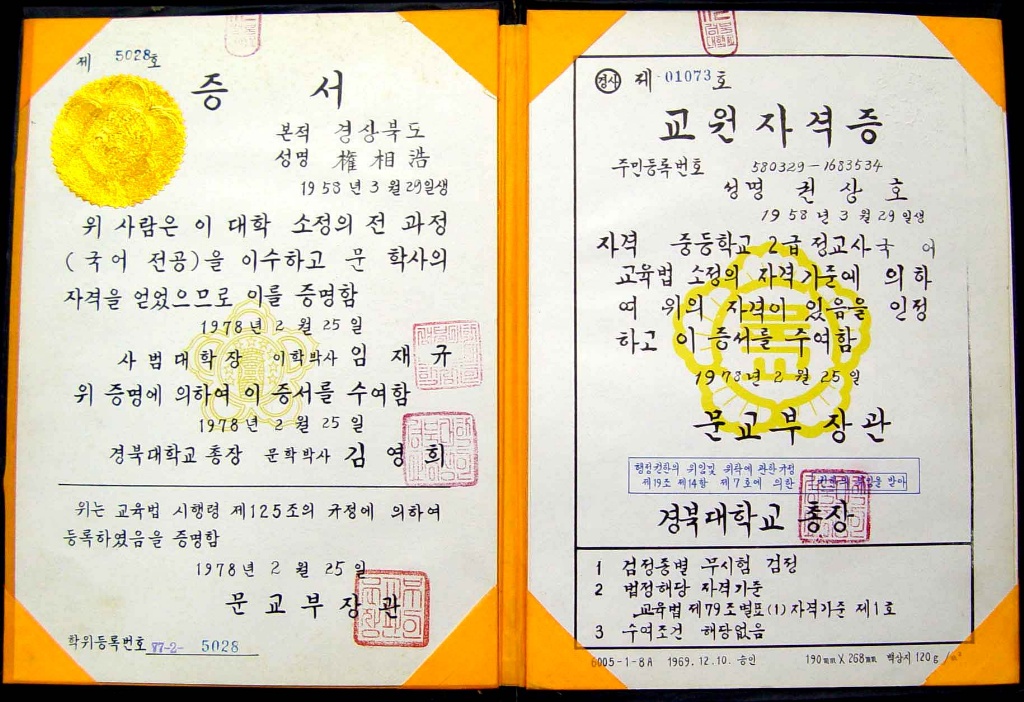 제 5028호
증 서
본적 경상북도
성명 權相浩
1958년 3월 29일생
위 사람은 이 대학 소정의 전 과정
(국어 전공)을 이수하고 문 학사의
자격을 얻었으므로 이를 증명함
1978년 2월 25일
사범대학장 이학박사 임재규
위 증명에 의하여 이 증서를 수여함
1978년 2월 25일
경북대학교 총장 문학박사 김영희
위는 교육법 시행령 제125조의 규정에 의하여
등록하였음을 증명함
1978년 2월 25일
문교부장관
학위등록번호 77-2- 5028
경사 제 01073호
교원자격증
주민등록번호 580329-1683534
성명 권상호
1958년 3월 29일생
자격 중등학교 2급 정교사 국어
교육법 소정의 자격기준에 의하
여 위의 자격이 있음을 인정
하고 이 증서를 수여함
1978년 2월 25일
문교부장관
행정권한의 위임및 위탁에 관한 규정
제19조 제14항 제7호에 의한 권한의 위임을 받아
경북대학교 총장
1 검정종별 무시험 검정
2 법정해당 자격기준
교육법 제79조 별표(1) 자격기준 제1호
3 수여조건 해당없음
6005-1-8A 1969.12.10. 승인 190mm X 268mm 백상지 120g/m²